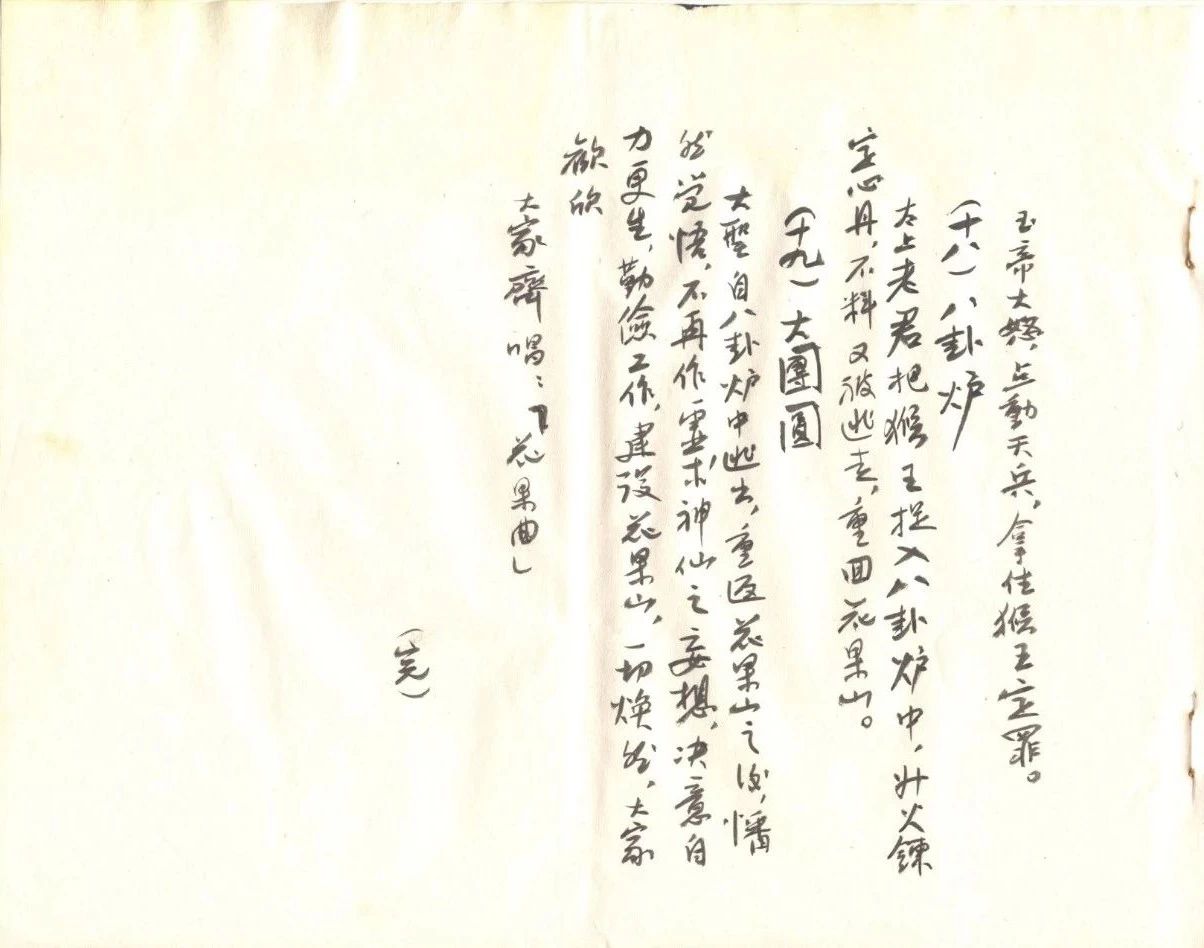 玉帝大怒，点動天兵，拿住猴王定罪。
（十八）八卦炉
太上老君把猴王捉入八卦炉中，升火鍊
定心丹，不料又被逃走，重回花果山。
（十九）大團圓
大聖自八卦炉中逃出，重返花果山之後，憣
然觉悟，不再作灵求神仙之妄想，决意自
力更生，勤儉工作，建設花果山，一切焕然，大家
歡欣
大家齊唱：「花果曲」
（完）